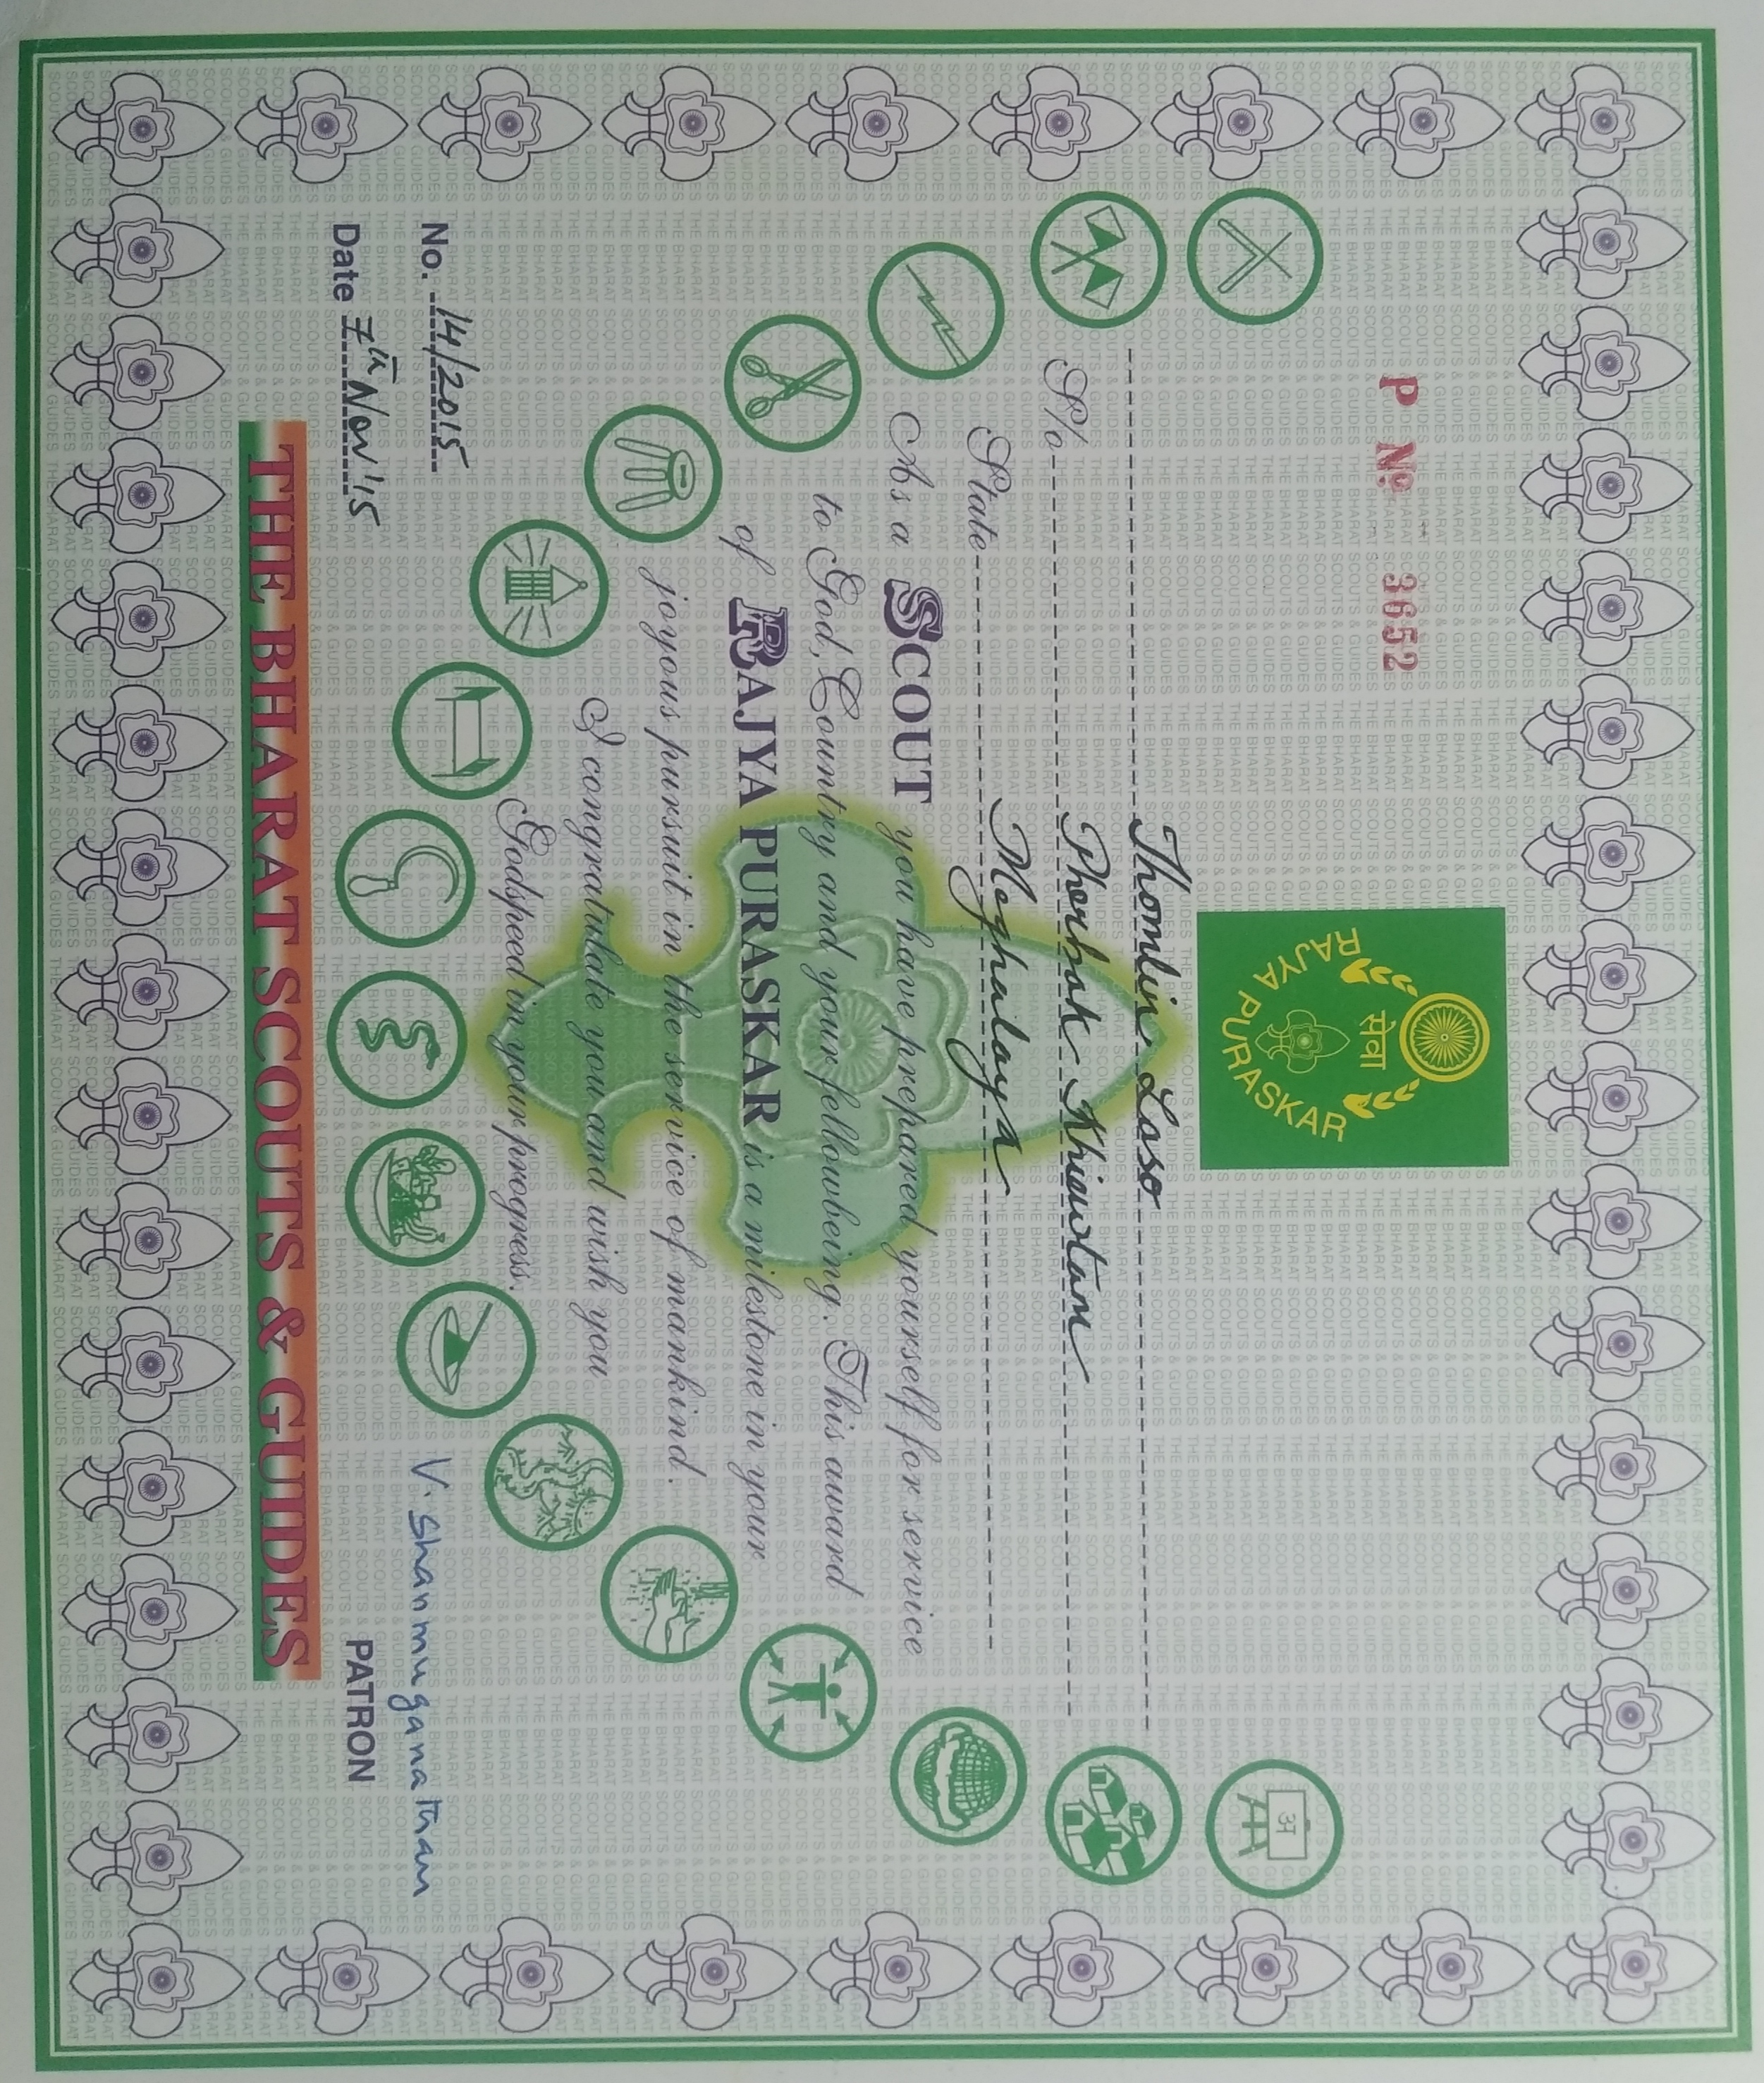 P № 3652
सेवा
RAJYA PURASKAR
अ
Thomlin Laso
S/o Pherbok Khiewtam
State Meghalaya
As a SCOUT you have prepared yourself for service
to God, Country and your fellowbeing. This award
of RAJYA PURASKAR is a milestone in your
joyous pursuit in the service of mankind.
I congratulate you and wish you
Godspeed in your progress.
No. 14/2015
V. Shanmuganathan
Date 7th Nov '15
PATRON
THE BHARAT SCOUTS & GUIDES